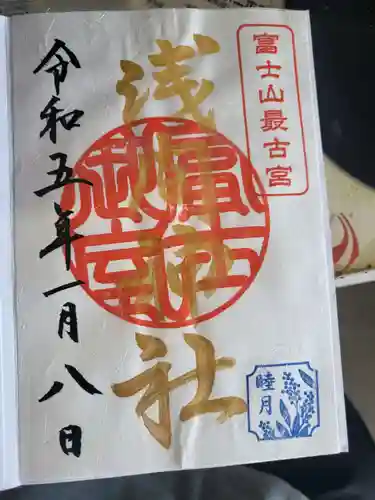 富士山最古宮
浅間神社
令和五年一月八日
睦月